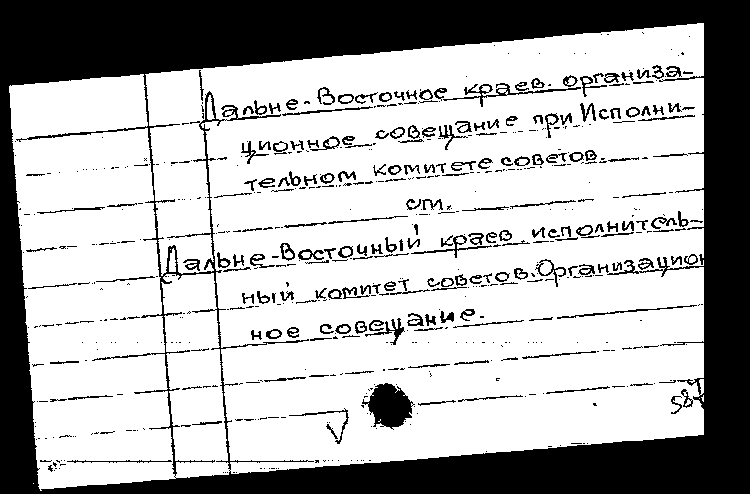 Дальне-Восточное краев. организа-
ционное совещание при Исполни-
тельном комитете советов.
см.
Дальне-Восточный краев. исполнитель-
ный комитет советов. Организацион
ное совещание.
V
587